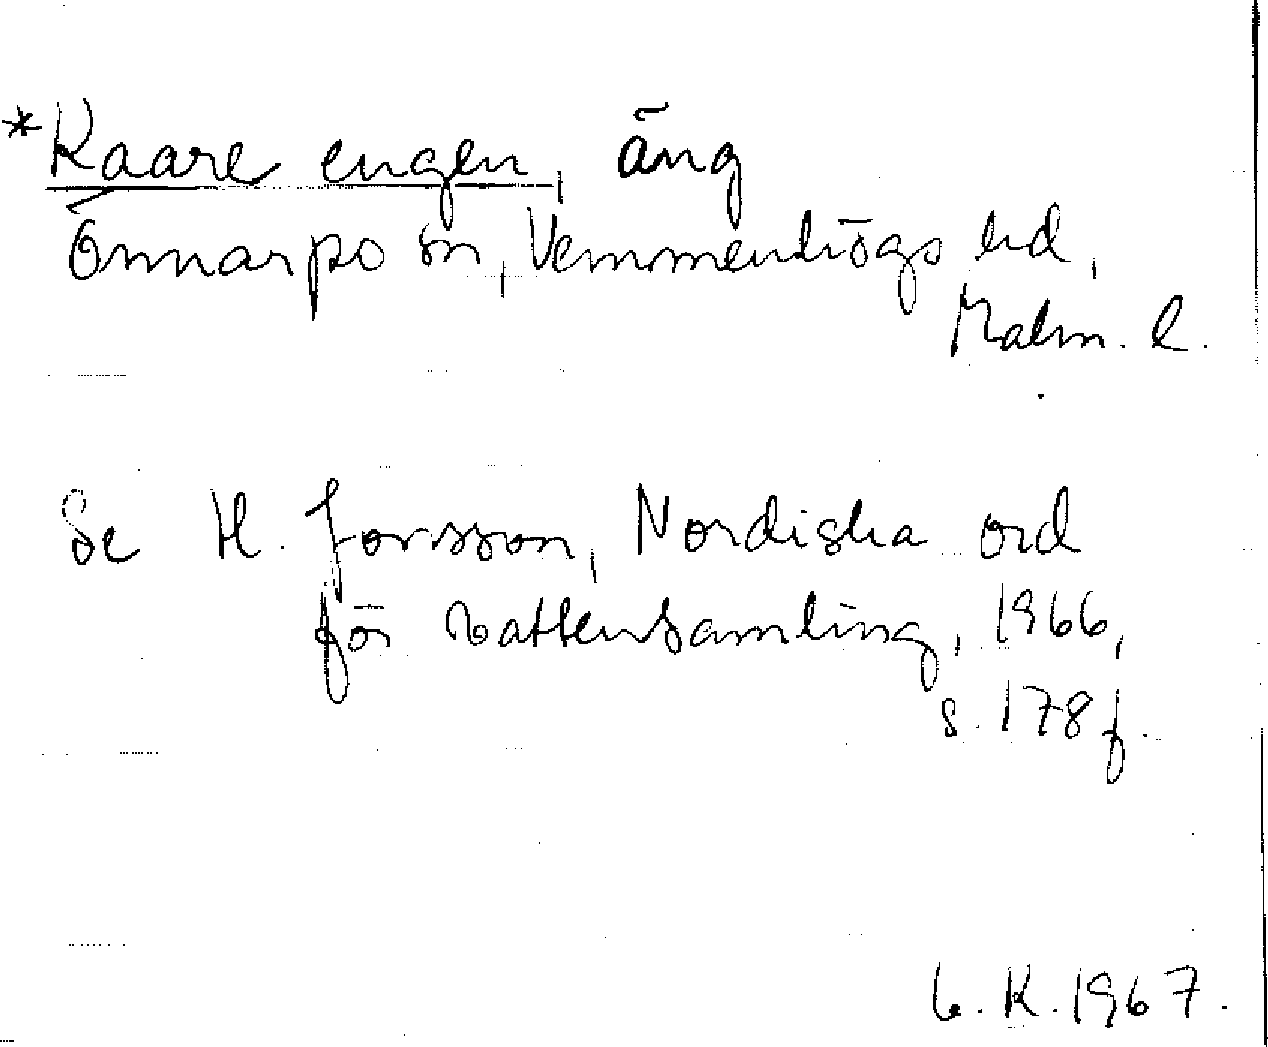 *Kaare engen, äng
Önnarps sn, Vemmenhögs hd,
Malm. l.
Se H. Jonsson, Nordiska ord
för vattensamling, 1966,
s. 178 f.
K. 1967.